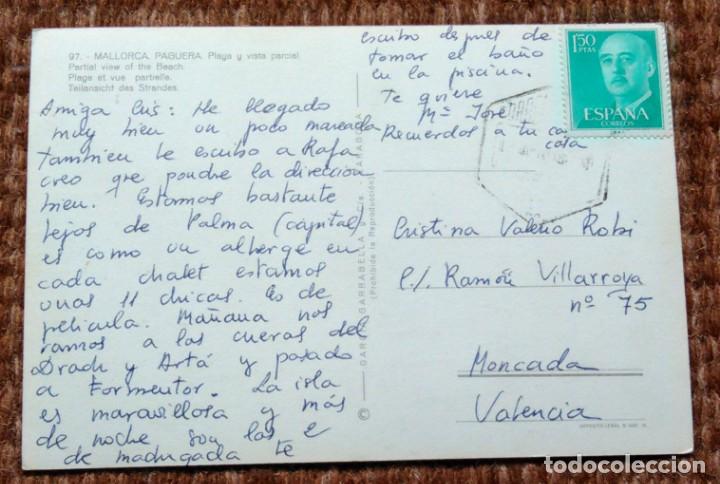 97. - MALLORCA. PAGUERA. Playa y vista parcial.
Partial view of the Beach.
Plage et vue partielle.
Teilansicht des Strandes.
Amiga Cris: He llegado
muy bien un poco mareada
tambien le escribo a Rafa
creo que pondre la direccion
bien. Estamos bastante
lejos de Palma (capital)
es como un alberge en
cada chalet estamos
unas 11 chicas. Es de
pelicula. Mañana nos
vamos a las cuevas del
Drach y Artá y pasado
a Formentor. La isla
es maravillosa y más
de noche son las 2
de madrugada te
escribo despues de
tomar el baño
en la piscina.
Te quiere
Mª José
Recuerdos a tu ca
1'50
PTAS
ESPAÑA
CORREOS
© GARCIA GARRABELLA y Cía. - ZARAGOZA
(Prohibida la Reproducción)
Cristina Valero Robi
C/. Ramón Villarroya
nº 75
Moncada
Valencia
DEPOSITO LEGAL
todocoleccion